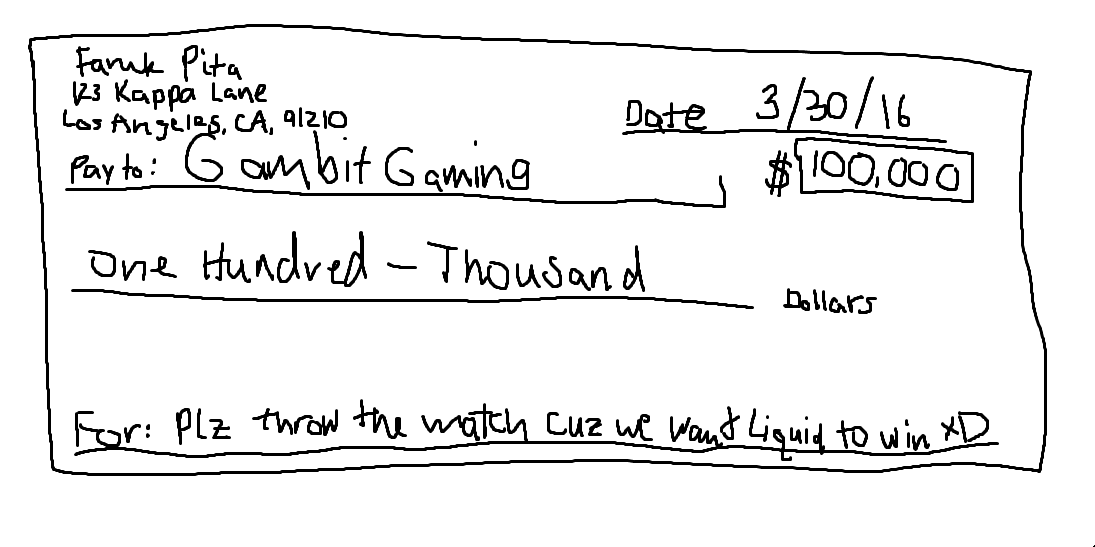 Faruk Pita
123 Kappa Lane
Los Angeles, CA, 91210
Date 3/30/16
Pay to: Gambit Gaming
$ 100,000
One Hundred - Thousand
Dollars
For: Plz throw the match cuz we want Liquid to win xD